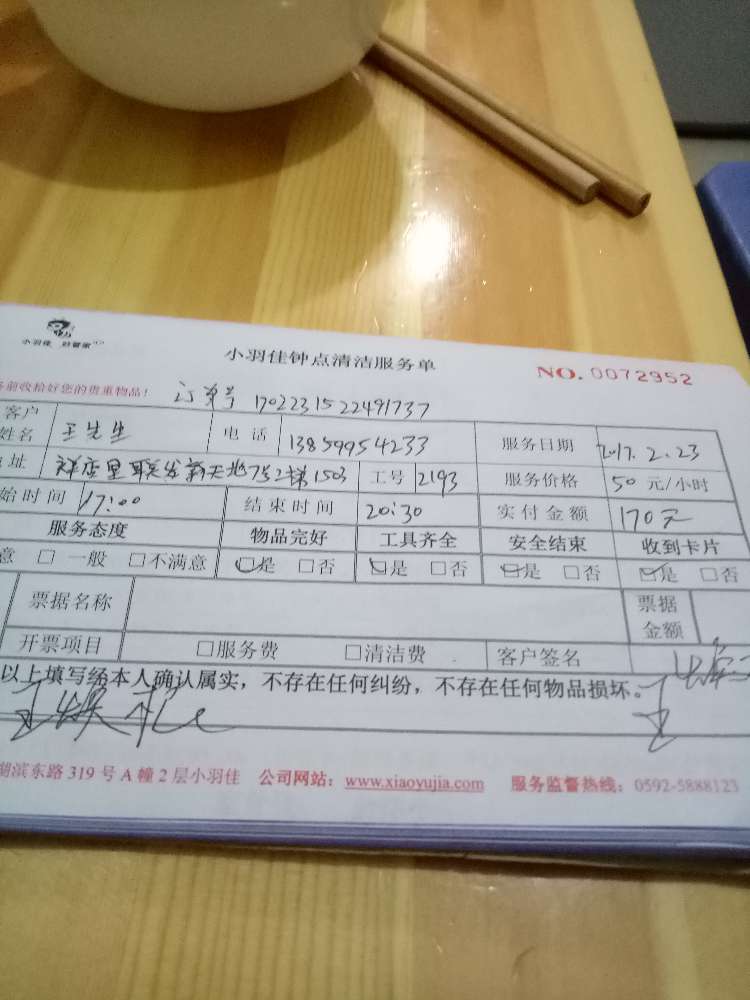 小羽佳 好管家
小羽佳钟点清洁服务单 NO. 0072952
务前收拾好您的贵重物品! 订单号 1702231522491737
客户姓名 王先生 电话 13859954233 服务日期 2017.2.23
地址 祥店里联发新天地752梯1503 工号 2193 服务价格 50 元/小时
始时间 17:00 结束时间 20:30 实付金额 170元
服务态度 物品完好 工具齐全 安全结束 收到卡片
意 □一般 □不满意 ☑是 □否 ☑是 □否 ☑是 □否 ☑是 □否
票据名称 票据金额
开票项目 □服务费 □清洁费 客户签名
以上填写经本人确认属实,不存在任何纠纷,不存在任何物品损坏。
湖滨东路 319 号 A 幢 2 层小羽佳 公司网站: www.xiaoyujia.com 服务监督热线: 0592-5888123